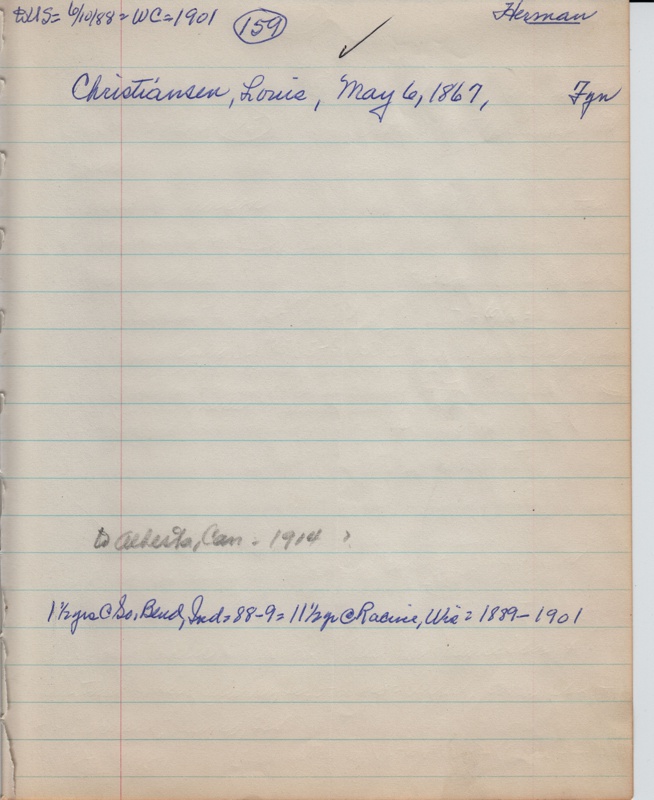 DUS = 6/10/88 = WC = 1901 159 Herman
Christiansen, Louie, May 6, 1867, Fyn
to Alberta, Can = 1914 ?
1½ yrs @ So. Bend, Ind = 88-9 = 11½ yr @ Racine, Wis = 1889-1901